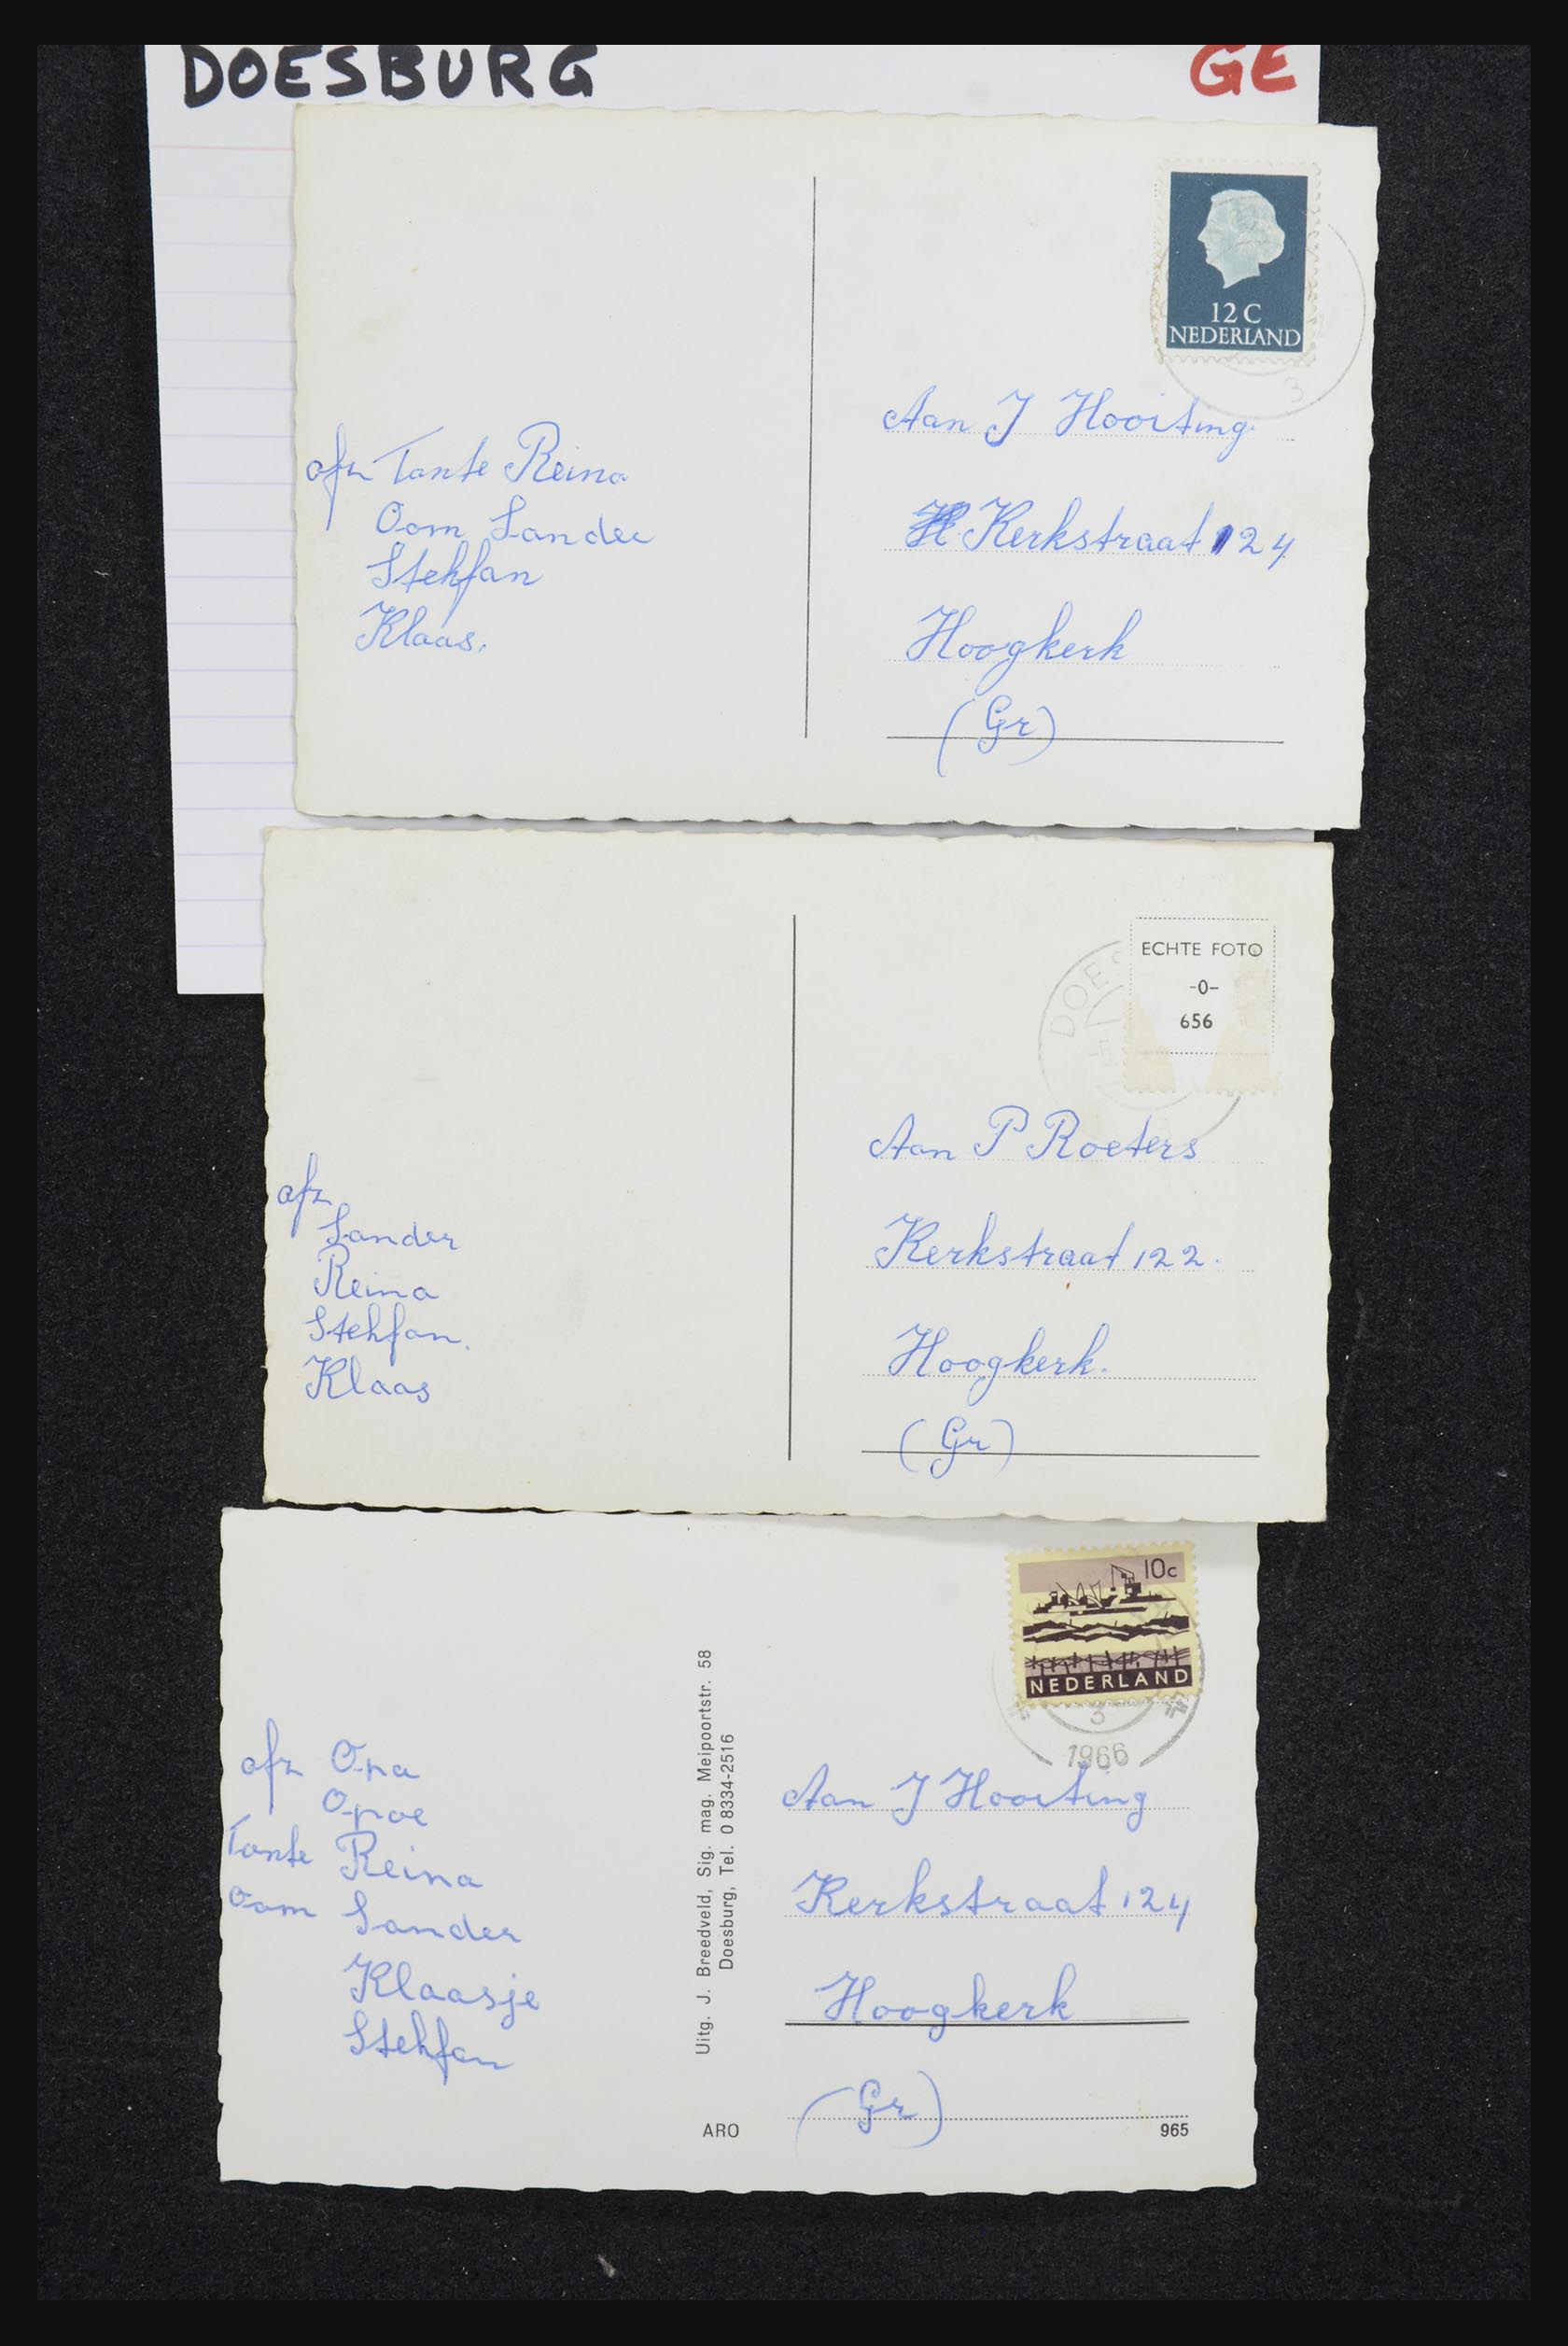 DOESBURG
GE
12 C
NEDERLAND
3
Aan J Hooiting
Kerkstraat 124
Hoogkerk
(Gr)
afz Tante Reina
Oom Sander
Stehfan
Klaas.
ECHTE FOTO
-0-
656
DOES
Aan P Roeters
Kerkstraat 122.
Hoogkerk.
(Gr)
afz
Sander
Reina
Stehfan.
Klaas
10c
NEDERLAND
3
1966
Aan J Hooiting
Kerkstraat 124
Hoogkerk
(Gr)
afz Opa
Opoe
Tante Reina
Oom Sander
Klaasje
Stehfan
Uitg. J. Breedveld, Sig. mag. Meipoortstr. 58
Doesburg, Tel. 0 8334-2516
ARO
965